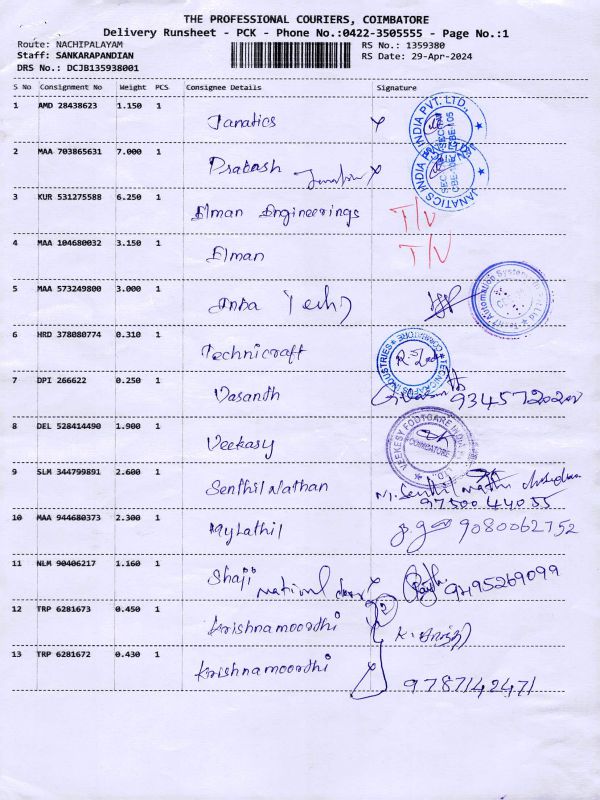 THE PROFESSIONAL COURIERS, COIMBATORE
Delivery Runsheet - PCK - Phone No.:0422-3505555 - Page No.:1
Route: NACHIPALAYAM RS No.: 1359380
Staff: SANKARAPANDIAN RS Date: 29-Apr-2024
DRS No.: DCJB135938001
S No Consignment No Weight PCS Consignee Details Signature
1 AMD 28438623 1.150 1 Janatics
2 MAA 703865631 7.000 1 Prakash
3 KUR 531275588 6.250 1 Elman Engineerings T/V
4 MAA 104680032 3.150 1 Elman T/V
5 MAA 573249800 3.000 1 Tech
6 HRD 378080774 0.310 1 Technicraft
7 DPI 266622 0.250 1 Vasanth
8 DEL 528414490 1.900 1 Veekasy
VEEKESY FOOTCARE COIMBATORE
9 SLM 344799891 2.600 1 Senthil Nathan
9750044055
10 MAA 944680373 2.300 1 Mylathil 9080062752
11 NLM 90406217 1.160 1 Shaji National 9495269099
12 TRP 6281673 0.450 1 Krishnamoorthi
13 TRP 6281672 0.430 1 Krishnamoorthi
9787142471